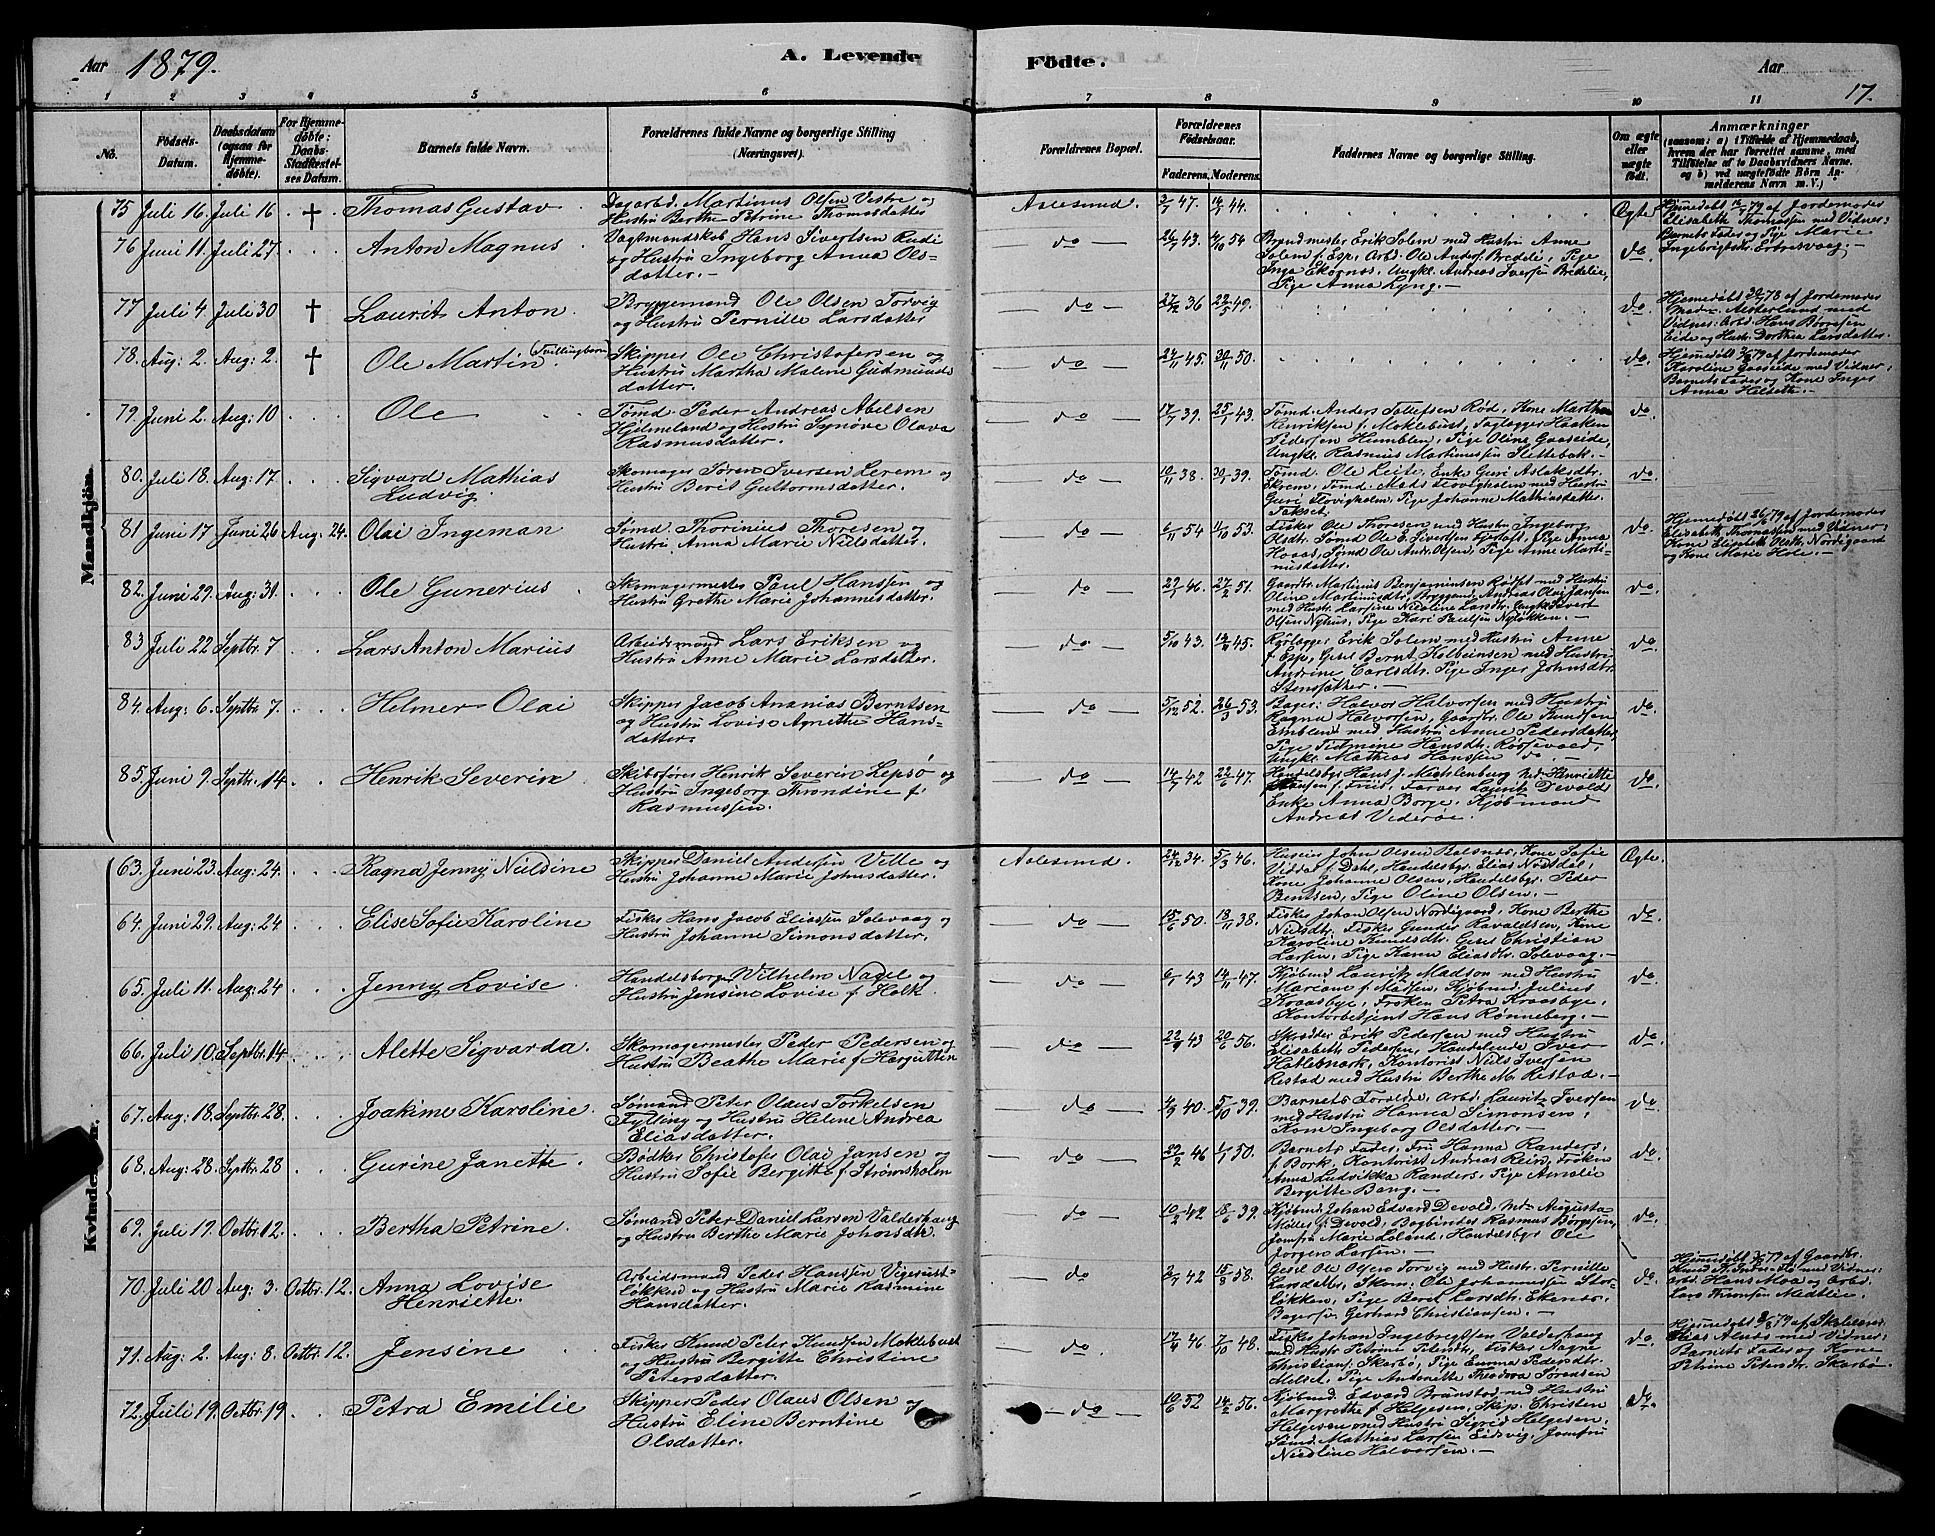 Aar 1879. A. Levende Födte. Aar 17.
1 2 3 4 5 6 7 8 9 10 11
No. Födsels-Datum. Daabsdatum (ogsaa for Hjemmedöbte). For Hjemmedöbte: Daabs-Stadfæstelses Datum. Barnets fulde Navn. Forældrenes fulde Navne og borgerlige Stilling (Næringsvei). Forældrenes Bopæl. Forældrenes Födselsaar. Faderens. Moderens. Faddernes Navne og borgerlige Stilling. Om ægte eller uægte födt. Anmærkninger (saasom: a) i Tilfælde af Hjemmedaab, hvem der har forrettet samme, med Tilföielse af to Daabsvidners Navne, og b) ved uægtefödte Börn Anmelderens Navn m. V.)
Mandkjön.
75 Juli 16. Juli 16 † Thomas Gustav Dagarbd. Martinus Olsen Vestre og
Hustru Berthe Petrine Thomasdatter Aalesund. 47. 44. Ægte Hjemedøbt 79 af Jordemoder
Elisabeth Thomassen med Vidner:
Barnets Fader og Pige Marie
76 Juni 11. Juli 27. Anton Magnus Vagtmandskab Hans Sivertsen Rudi
og Hustru Ingeborg Anna Ols-
datter. do 43. 54 Brandmester Erik Solem med Hustru Anne
Solem f. Esp, Arbd. Ole Anders. Bredeli, Pige
Inga Ekornes, Ungkl. Andreas Iversen Bredelie,
Pige Anna Lyng. do.
77 Juli 4 Juli 30 † Laurits Anton. Bryggemand Ole Olsen Torvig
og Hustru Pernille Larsdatter do 36 49. do. Hjemedøbt 78 af Jordemoder
med
Vidner: Arbd. Hans Børresen
Eide og Hustr. Dorthea Larsdatter.
78. Aug: 2. Aug: 2. † Ole Martin (Tvillingbarn) Skipper Ole Christofersen og
Hustru Martha Malene Gudmunds
datter. do 45. 50. do. Hjemedøbt 79 af Jordemoder
Karoline Gaaseide med Vidner:
Barnets Fader og Kone Inger
Anna Helseth.
79. Juni 2. Aug: 10 Ole Tømd. Peder Andreas Abelsen
Hjelmeland og Hustru Synøve Olava
Rasmusdatter. do 39. 43. Tømd. Anders Tollefsen Rød, Kone Marthe
Henriksen f. Moklebust, Taglægger Haaken
Pedersen Humblen, Pige Oline Gaaseide,
Ungkl. Rasmus Martinussen Slettebak. do.
80. Juli 18. Aug: 17. Sigvard Mathias
Ludvig. Skomager Søren Iversen Lerem og
Hustru Berit Guttormsdatter. do 38. 39. Tømd. Ole Leite, Enke Guri Aslaksdtr.
Ekrem, Tømd. Mads Flovigholm med Hustru
Guri Flovigholm, Pige Johanne Mathiasdatter
do.
81 Juni 17 Juni 26 Aug. 24. Olai Ingeman Sømd. Thorinius Thoresen og
Hustru Anna Marie Nielsdatter. do 54 53. Fisker Ole Thoresen med Hustru Ingeborg
Olsdtr. Sømd Ole E. Sivertsen, Pige Anna
Hoaas, Sømd Ole Andr. Olsen, Pige Anne Marti-
nusdatter. do. Hjemedøbt 79 af Jordemoder
Elisabeth Thomassen med Vidner:
Kone Elisabeth Olsdtr. Nordigaard
og Kone Marie Hole.
82. Juni 29. Aug: 31. Ole Gunerius Skomagermester Paul Hanssen og
Hustru Grethe Marie Johannesdatter. do 46. 51. Gaardbr. Martinus Benjaminsen Rødset med Hustru
Oline Martinusdtr. Bryggemd. Andreas Olai Jansen
med Hustr. Larsine Nicoline Larsdtr. Ungk. Sivert
Olsen Nyhus, Pige Kari Paulsen Nyløkken. do.
83 Juli 22 Septbr. 7 Lars Anton Marius Arbeidsmand Lars Eriksen og
Hustru Anne Marie Larsdatter. do 43. 45. Erik Solem med Hustru Anne
f. Esp, Gesel Bernt Kolbeinsen med Hustru
Andrine Carlsdtr. Pige Inger Johnsdtr.
do.
84. Aug: 6. Septbr. 7. Helmer Olai Skipper Jacob Ananias Berntsen
og Hustru Lovise Agnethe Hans-
datter. do 52. 53. Bager: Halvor Halvorsen med Hustru
Ragna Halvorsen, Gaardbr. Ole Knudsen
Emblem med Hustru Anne Pedersdatter,
Pige Hansdtr. Rørsevold,
Ungkl. Mathias Hanssen do. do.
85. Juni 9. Septbr. 14 Henrik Severin Skibsfører Henrik Severin Lepsø og
Hustru Ingeborg Trondine f.
Rasmussen. do 42 47. Handelsbg. Hans J. Mecklenburg Md. Henriette
Hansen f. Friis, Farver Laurits Devold,
Enke Anna Borge. Kjøbmand
Andreas Viderøe. do.
Kvindekjön.
63. Juni 23. Aug: 24. Ragna Jenny Nieldine Skipper Daniel Andersen Velle og
Hustru Johanne Marie Johnsdatter. Aalesund. 34. 46. Huseier John Olsen Balsnes, Kone Sofie
Viddal f. Dahl, Handelsbgr. Elias Nørdal,
Kone Johanne Olsen, Handelsbgr. Peder
Bentsen, Pige Oline Olsen. Ægte.
64. Juni 29. Aug: 24. Elise Sofie Karoline Fisker Hans Jacob Eliassen Solevaag og
Hustru Johanne Simonsdatter. do 50. 38. Fisker Johan Olsen Nordigaard, Kone Berthe
Nielsdtr. Fisker Gunder Ravaldsen, Kone
Karoline Knudsdtr. Gesel Christian
Larsen, Pige Karen Eliasdtr. Solevaag. do.
65. Juli 11. Aug: 24 Jenny Lovise. Handelsborger Wilhelm Nagel og
Hustru Jensine Lovise f. Holk. do 43 47. Kjøbmd. Lauritz Madson med Hustru
Mariane f. Massen, Kjøbmd. Julius
Kraasbye, Frøken Petra Kraasbye,
Kontorbetjent Hans Rønneberg. do.
66. Juli 10. Septbr. 14 Alette Sigvarda. Skomagermester Peder Pedersen og
Hustru Beathe Marie f. do 43 56. Skrædder Erik Pedersen med Hustru
Elisabeth Pedersen, Handelsmd. Iver
Kontorist Niels Iversen
Restad med Hustru Berthe M. Restad. do.
67. Aug: 18. Septbr. 28. Joakime Karoline. Sømand Peter Olaus Torkelsen
Fylling og Hustru Helene Andrea
Eliasdatter. do 40. 39. Barnets Forældre, Arbd. Lauritz Iversen
med Hustru Hanna Simonsen,
Kone Ingeborg Olsdatter. do.
68. Aug: 28. Septbr. 28 Gurine Janette. Bødker Christofer Olai Jansen og
Hustru Sofie Bergitte f. Strømsholm do 46 50. Barnets Fader, Fru Hanna Randers,
f. Bork, Kontorist Andreas Rein, Frøken
Anna Ludvikka Randers, Pige Amalie
Bergitte Bang. do.
69. Juli 19. Octbr. 12. Bertha Petrine. Sømand Peter Daniel Larsen Valderhaug
og Hustru Berthe Marie Johansdtr. do 42 39. Kjøbmd. Johan Edvard Devold, Md. Augusta
Møller f. Devold, Bogbinder Rasmus Børgesen,
Jomfru Marie Loland, Handelsbgr. Ole
Jørgen Larsen. do.
70. Juli 20 Aug: 3. Octbr. 12. Anna Lovise
Henriette. Arbeidsmand Peder Hanssen Vigerust-
løkken og Hustru Marie Rasmine
Hansdatter. do 42 58. Gesel Ole Olsen Torvig med Hustr. Pernille
Larsdatter, Skom: Ole Johannessen Stor-
løkken, Pige Beret Larsdtr. Ekenes.
Gerhard Christiansen. do. Hjemedøbt 79 af Gaardbr.
Knud med Vidner:
Arbd. Hans Moa og Arbd.
Lars Thomsen Medtlie.
71. Aug: 2. Aug: 8. Octbr. 12. Jensine Fisker Knud Peter Knudsen Moklebust
og Hustru Bergitte Christine
Petersdatter. do. 46. 48. Fisker Johan Ingebrigtsen Valderhaug
med Hustr. Petrine Petersdtr. Fisker Magne
Christians. Skarbø, Pige Emma Pedersdtr.
Melset, Pige Antonette Theodora Sørensen do. Hjemedøbt 79 af Skolelærer
Elias Alnæs med Vidner:
Barnets Fader og Kone
Petrine Petersdtr. Skarbø
72. Juli 19. Octbr. 19. Petra Emilie Skipper Peder Olaus Olsen og
Hustru Eline Berntine
Olsdatter. do 52 56. Kjøbmd. Edvard Brunstad med Hustru
Margrethe f. Helgesen, Skip. Christen
Helgesen med Hustru Sigrid Helgesen.
Sømd. Mathias Larsen Eidsvig, Jomfru
Nicoline Halvorsen. do.